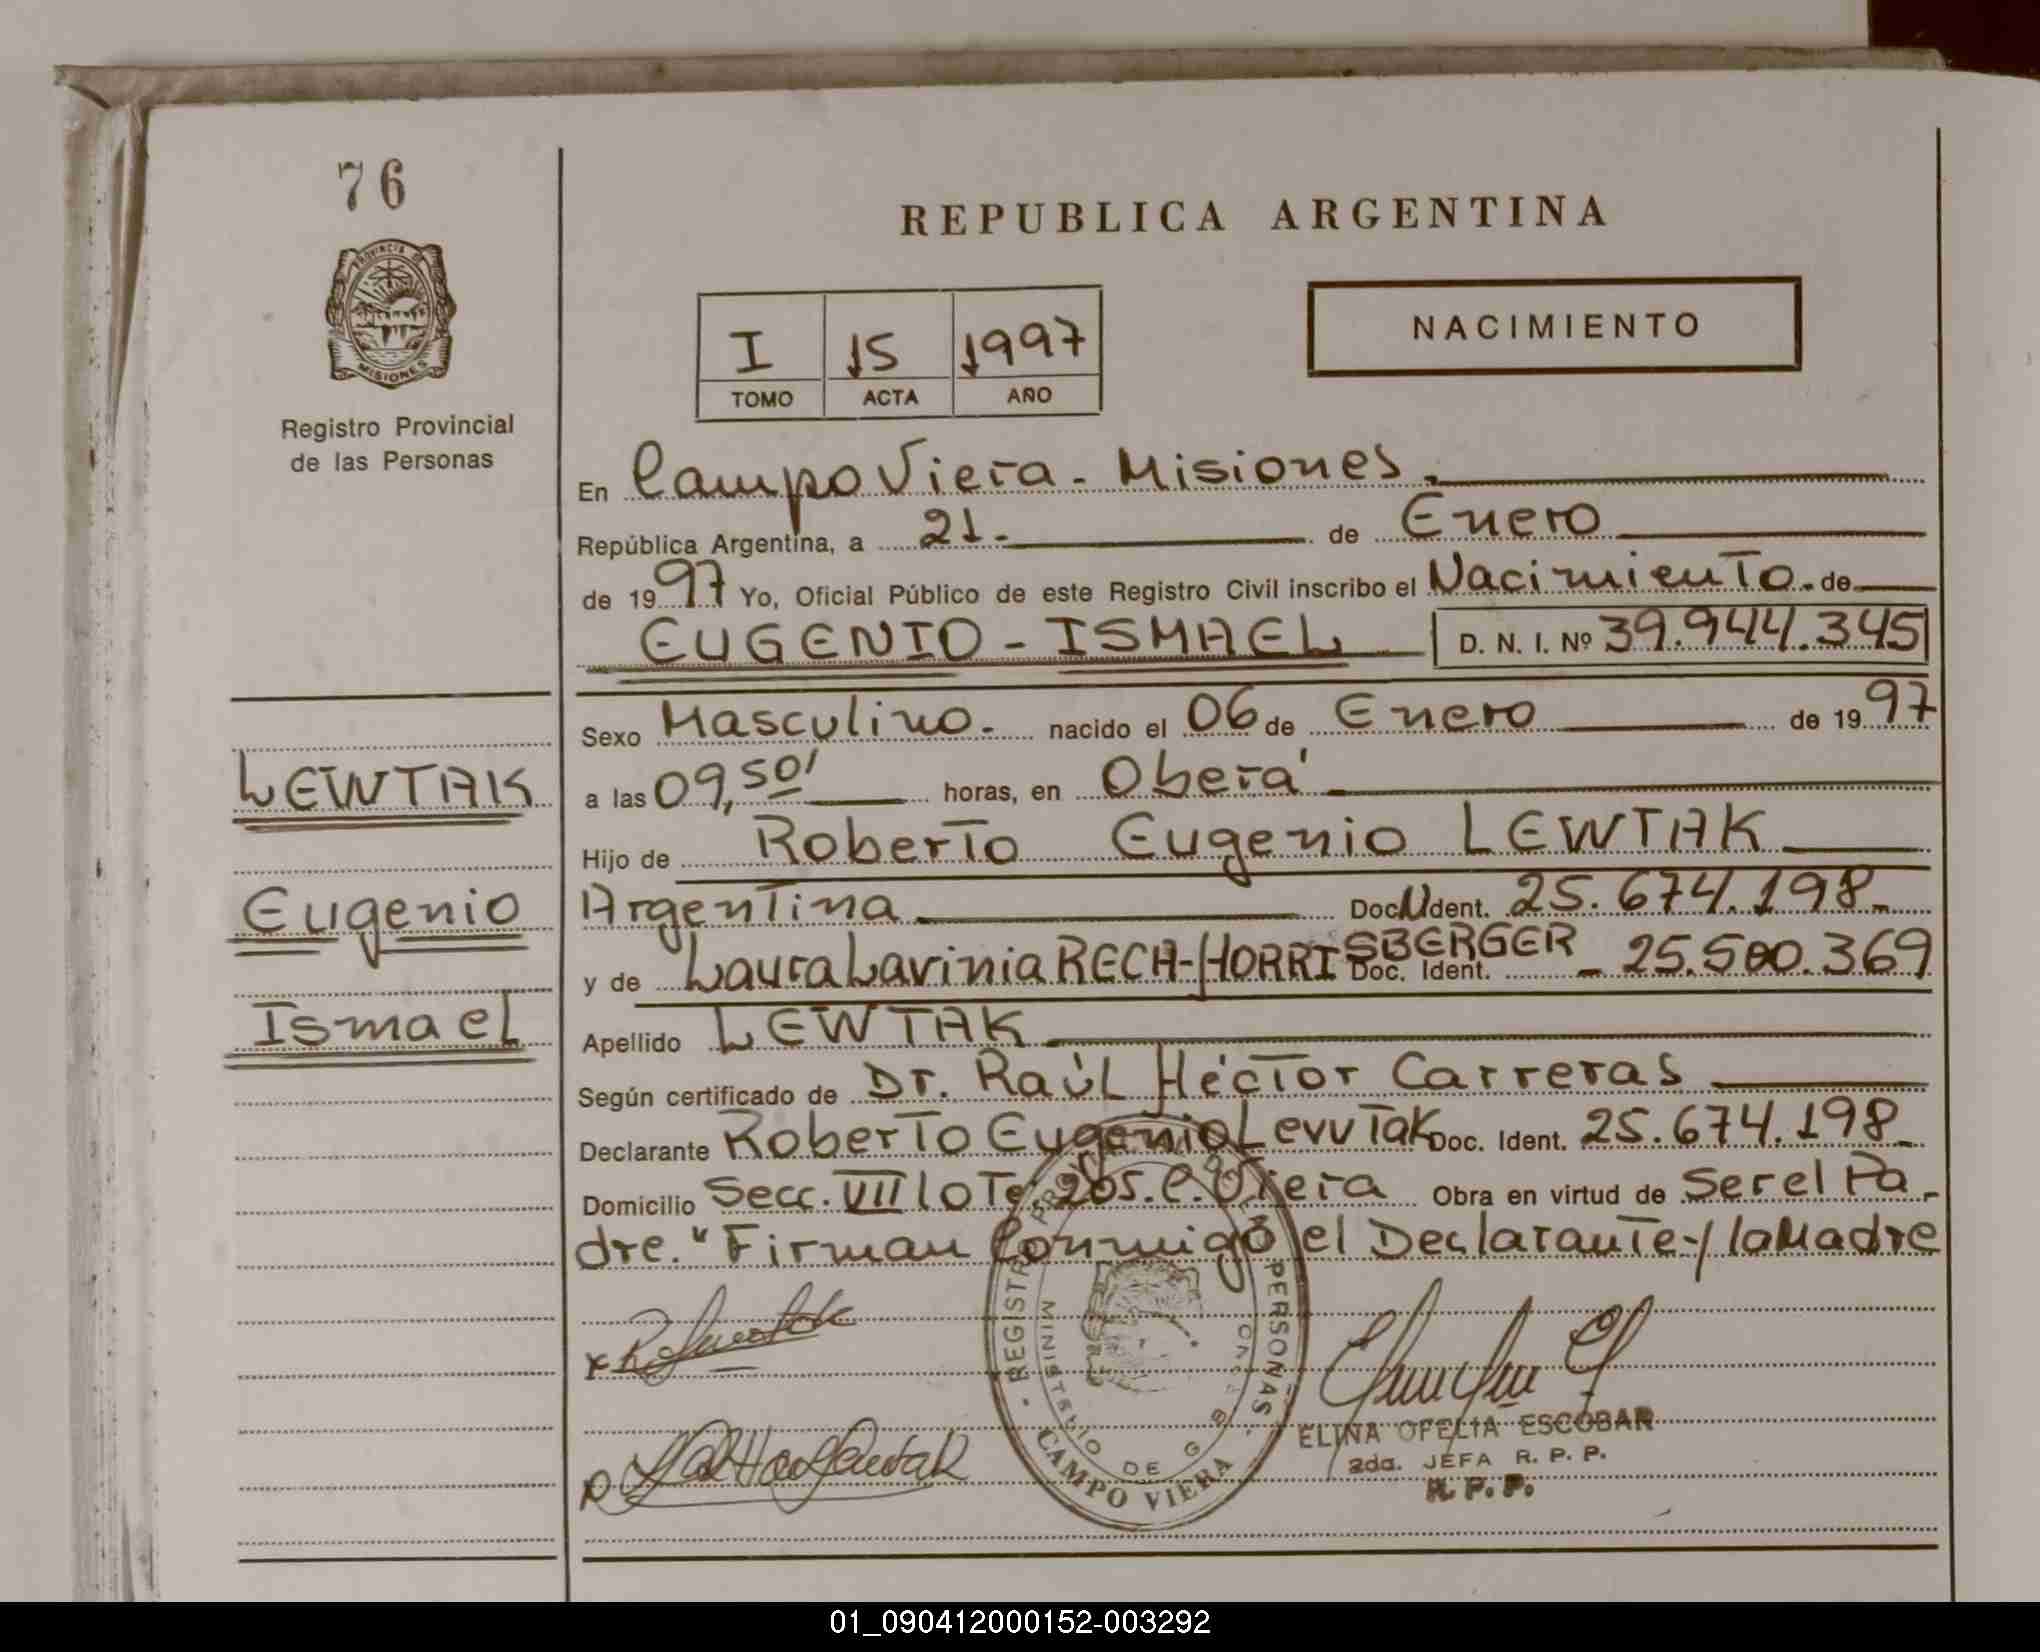 76
PROVINCIA DE
MISIONES
Registro Provincial
de las Personas
LEWTAK
Eugenio
Ismael
REPUBLICA ARGENTINA
I 15 1997
TOMO ACTA AÑO
NACIMIENTO
En Campo Viera - Misiones.
República Argentina, a 21. de Enero
de 1997 Yo, Oficial Público de este Registro Civil inscribo el Nacimiento. de
EUGENIO - ISMAEL D. N. I. Nº 39.944.345
Sexo Masculino. nacido el 06 de Enero de 1997
a las 09,50' horas, en Oberá
Hijo de Roberto Eugenio LEWTAK
Argentina Doc. Ident. 25.674.198_
y de Laura Lavinia RECH-HORRISBERGER Doc. Ident. - 25.500.369
Apellido LEWTAK
Según certificado de Dr. Raúl Héctor Carreras
Declarante Roberto Eugenio Lewtak Doc. Ident. 25.674.198_
Domicilio Secc. VII lote 205. C. Viera Obra en virtud de Ser el Pa-
dre." Firman Conmigo el Declarante y la Madre
REGISTRO PROVINCIAL DE LAS PERSONAS
MINISTERIO DE GOB
CAMPO VIERA
ELINA OFELIA ESCOBAR
2da. JEFA R. P. P.
R. P. P.
01_090412000152-003292